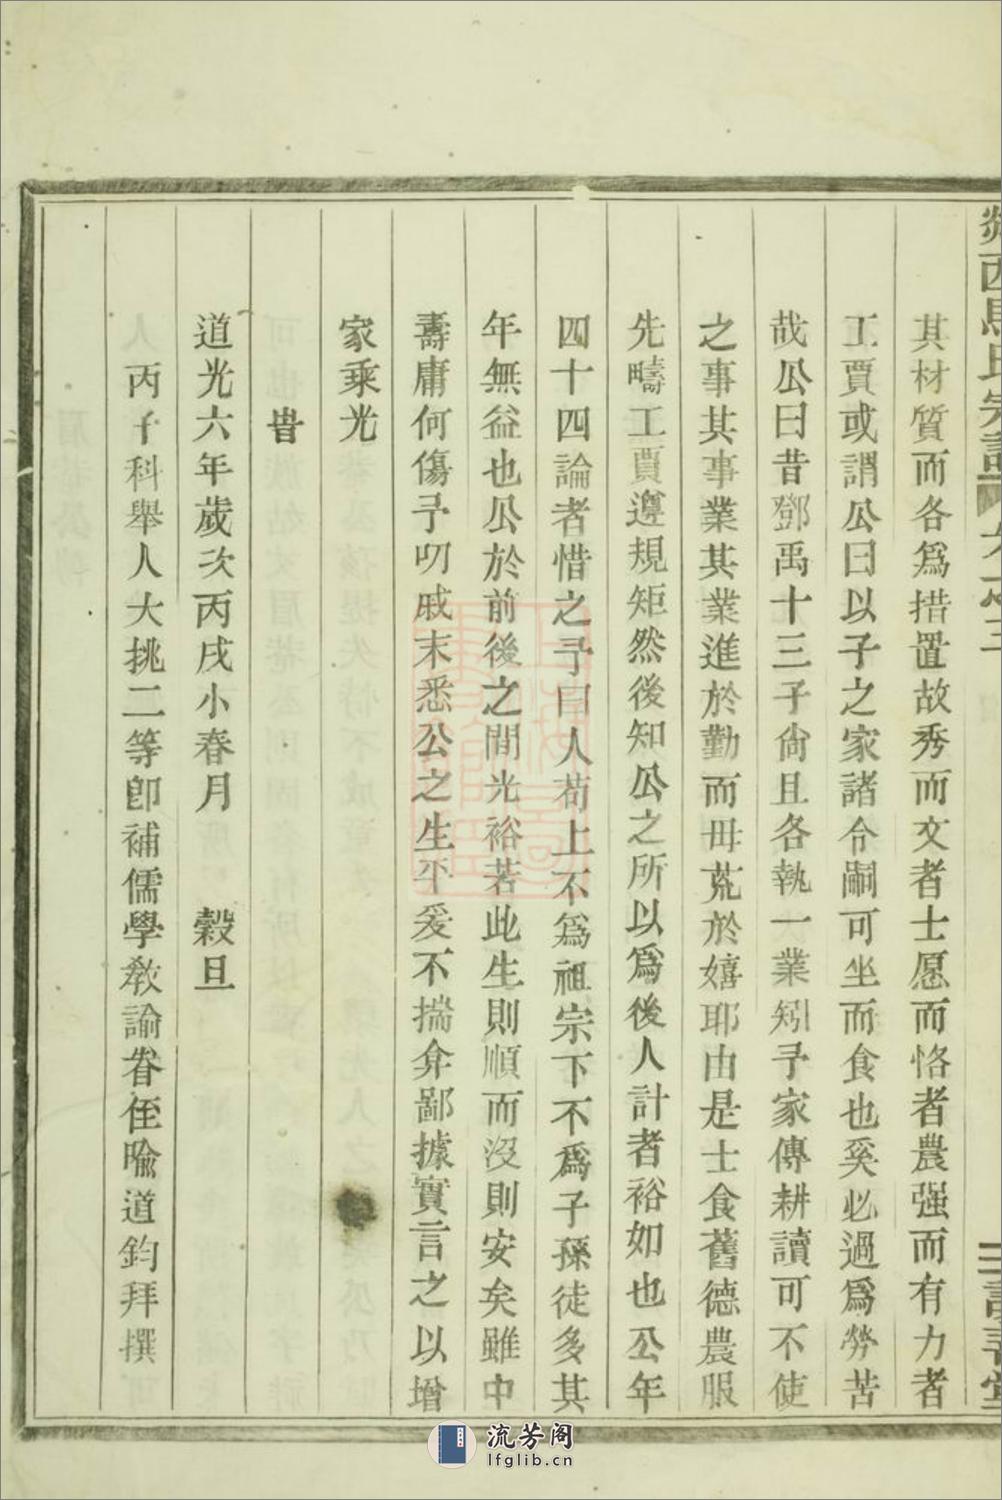 其材質而各爲措置故秀而文者士愿而恪者農强而有力者
工賈或謂公曰以子之家諸令嗣可坐而食也奚必過爲勞苦
哉公曰昔鄧禹十三子尙且各執一業矧予家傳耕讀可不使
之事其事業其業進於勤而毋荒於嬉耶由是士食舊德農服
先疇工賈遵規矩然後知公之所以爲後人計者裕如也公年
四十四論者惜之予曰人苟上不爲祖宗下不爲子孫徒多其
年無益也公於前後之間光裕若此生則順而沒則安矣雖中
壽庸何傷予叨戚末悉公之生平爰不揣弇鄙據實言之以增
家乘光
旹
道光六年歲次丙戌小春月 穀旦
丙子科舉人大挑二等卽補儒學敎諭眷侄喩道鈞拜撰
流芳阁
lfglib.cn